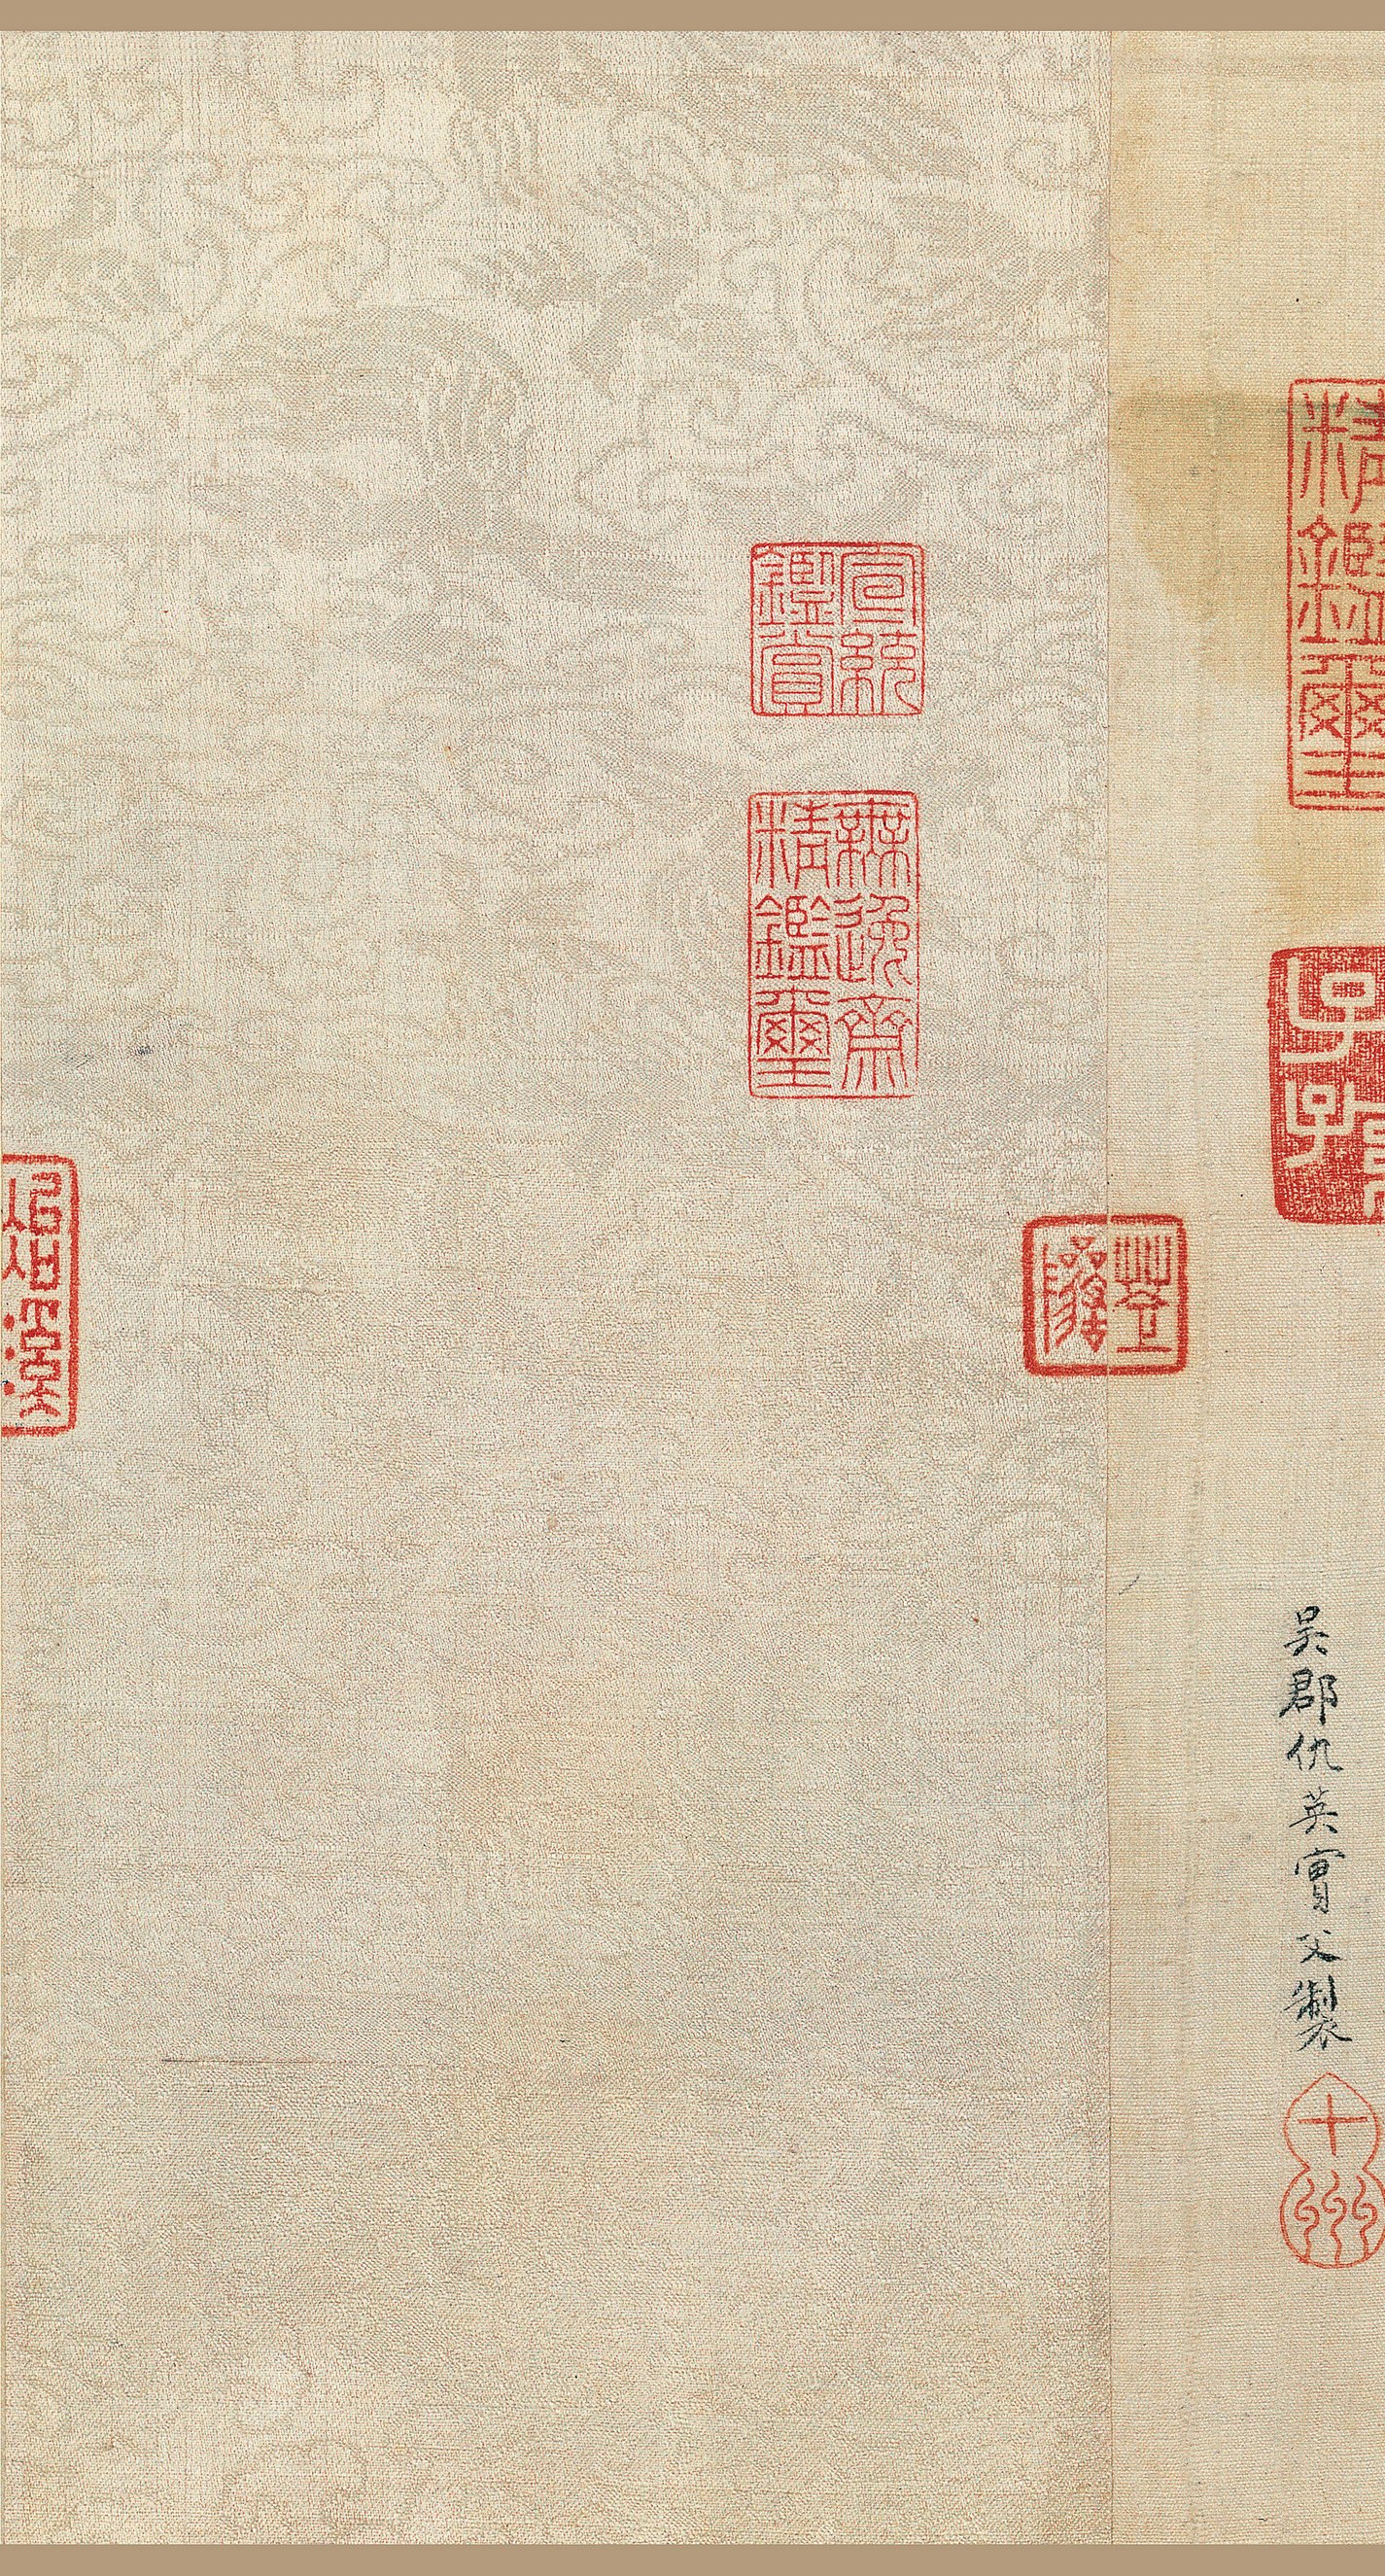 精鑑璽
吳郡仇英實父製
十洲
宣統
鑑賞
無逸齋
精鑑璽